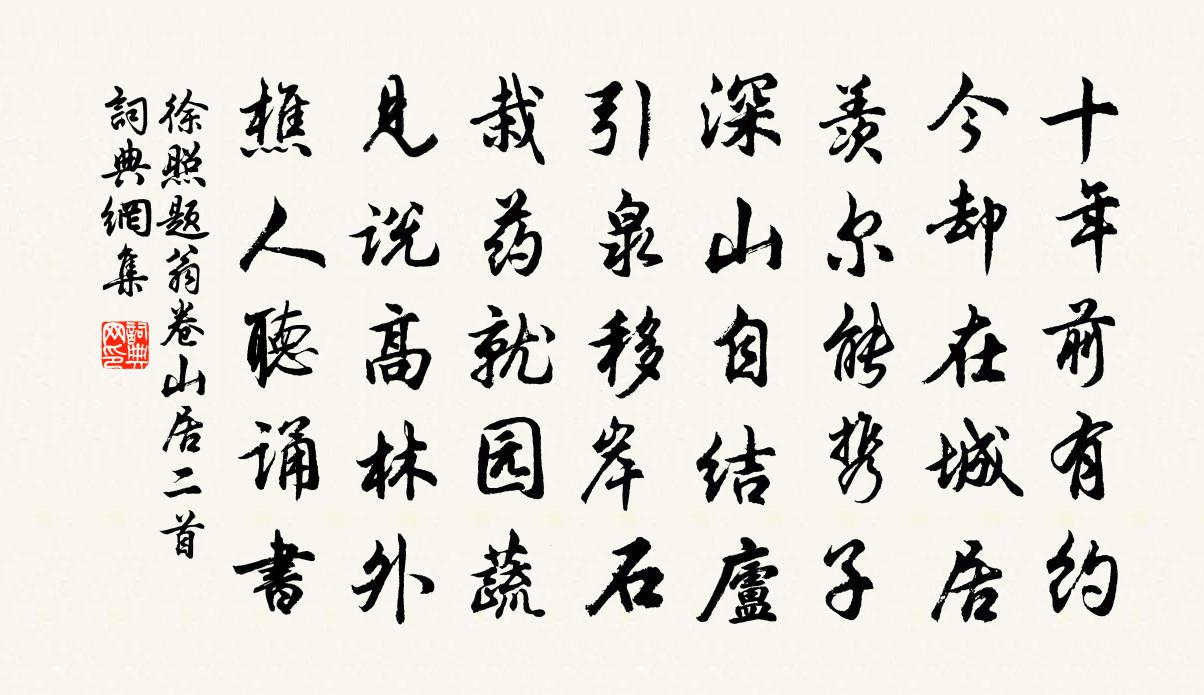 十年前有约
今却在城居
羡尔能携子
深山自结廬
引泉移岸石
栽药就园蔬
見说高林外
樵人聽诵書
徐照题翁卷山居二首
詞典網集
詞典网印